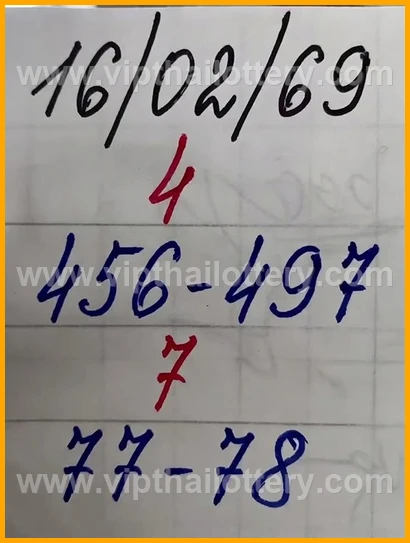 www.vipthailottery.com
16/02/69
4
456-497
www.vipthailottery.com
7
77-78
www.vipthailottery.com